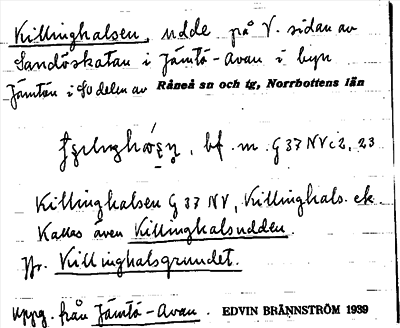 Killinghalsen, udde på V. sidan av
Sandöskatan i Jämtö-Avan i byn
Jämtön i SO delen av Råneå sn och tg, Norrbottens län
bf. m. G 37 NV i 2, 23
Killinghalsen G 37 NV, Killinghals. ek.
Kallas även Killinghalsudden.
Jfr. Killinghalsgrundet.
Uppg. från Jämtö-Avan. EDVIN BRÄNNSTRÖM 1939